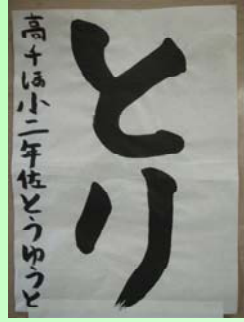 とり
高千ほ小二年佐とうゆうと